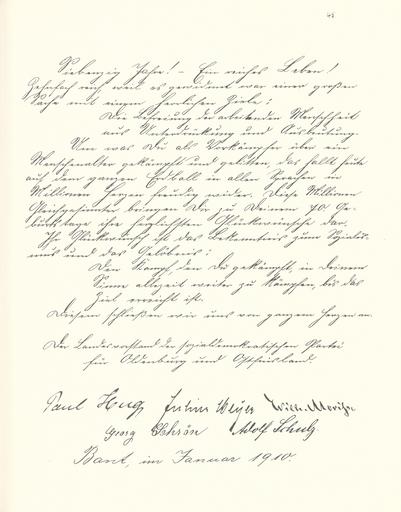 Siebenzig Jahre! – Ein reiches Leben!
Zehnfach reich, weil es gewidmet war einer großen
Sache mit einem herrlichen Ziele:
Die Befreiung der arbeitenden Menschheit
aus Unterdrückung und Ausbeutung.
Um was Du als Vorkämpfer über ein
Menschenalter gekämpft und gelitten, das hallt heute
auf dem ganzen Erdball in allen Sprachen in
Millionen Herzen freudig wider. Diese Millionen
Gleichgesinnter bringen Dir zu Deinem 70. Ge-
burtstage ihre herzlichsten Glückwünsche dar.
Ihr Glückwunsch ist das Bekenntnis zum Sozialis-
mus und das Gelöbnis:
Den Kampf, den Du gekämpft, in Deinem
Sinne allezeit weiter zu kämpfen, bis das
Ziel erreicht ist.
Diesem schließen wir uns von ganzem Herzen an.
Der Landesvorstand der sozialdemokratischen Partei
für Oldenburg und Ostfriesland.
Paul Hug Julius Meyer
Georg Adolf Schulz
Bant, im Januar 1910.